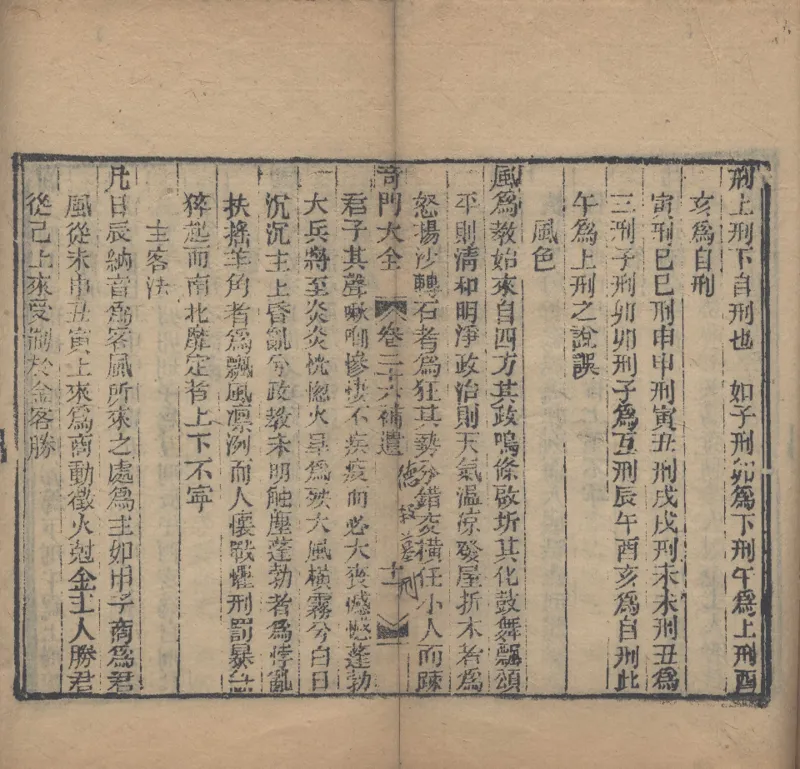 刑上刑下自刑也　如子刑卯為下刑午為上刑酉
亥為自刑
寅刑巳巳刑申申刑寅丑刑戌戌刑未未刑丑為
三刑子刑卯卯刑子為互刑辰午酉亥為自刑此
午為上刑之說誤
風色
風為教始來自四方其政鳴條啟坼其化鼓舞飄頌
平則清和明淨政治則天氣溫涼發屋折木者為
怒揚沙轉石者為狂其勢分錯交橫任小人而踈
奇門大全　卷三十六補遺　德　墓刑　十二
君子其聲啾啁慘悽不疾疫而必大喪憾憾蓬勃
大兵將至炎炎恍惚火旱為殃大風橫霧兮白日
沉沉主上昏亂兮政教未明触塵蓬勃者為悖亂
扶搖羊角者為飄風凛冽而人懷戰慄刑罰暴
猝起而南北靡定者上下不寧
主客法
凡日辰納音為客風所來之處為主如甲子商為君
風從未申丑寅上來為商動徵火剋金主人勝君
從己上來受制於金客勝